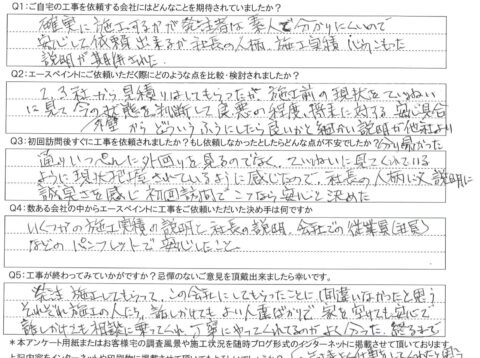 Q1：ご自宅の工事を依頼する会社にはどんなことを期待されていましたか？
確実に施工するかが発注者は素人で分かりにくいので
安心して依頼出来るか社長の人柄、施工実積 しっかりした
説明が期待された
Q2：エースペイントにご依頼いただく際にどのような点を比較・検討されましたか？
2,3社から見積りはしてもらったが、施工前の現状をていねい
に見て今の状態を判断して良悪の程度、将来に対する
からどういうふうにしたら良いかと細かい説明が他社より
分り易かった
Q3：初回訪問後すぐに工事を依頼されましたか？もし依頼しなかったとしたらどんな点が不安でしたか？
通りいっぺんに外回りを見るのでなく、ていねいに見てくれている
ように現状把握されているように感じたので、社長の人柄に又説明に
誠実さを感じ初回訪問でここなら安心と決めた
Q4：数ある会社の中からエースペイントに工事をご依頼いただいた決め手は何ですか
いくつかの施工実積の説明と社長の説明、会社での従業員(社員)
などのパンフレットで安心したこと。
Q5：工事が終わってみていかがですか？忌憚のないご意見を頂戴出来ましたら幸いです。
発注 施工してもらって、この会社にしてもらったことに間違いなかったと思う
それぞれ施工の人たち、話しかけてもよい人達ばかりで 家を空けても安心で
話しかけても相談に乗ってくれ、丁寧にやってくれてるのがよく分った。終るまで
＊本アンケート用紙またはお客様宅の調査風景や施工状況を随時ブログ形式のインターネットに掲載させて頂いております。